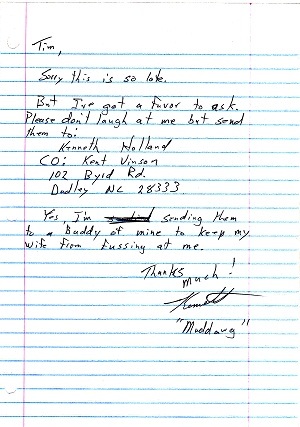 Tim,
Sorry this is so late.
But I've got a favor to ask.
Please don't laugh at me but send
them to:
Kenneth Holland
CO: Kent Vinson
102 Byrd Rd.
Dudley NC 28333.
Yes, I'm sending them
to a Buddy of mine to keep my
wife from fussing at me.
Thanks
much!
"Muddawg"